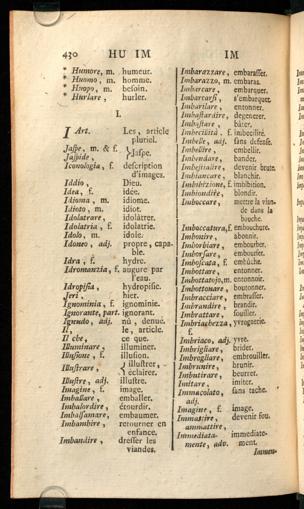 430 HU IM IM
* Humore, m. humeur.
* Huomo, m. homme.
* Huopo, m. besoin.
* Hurlare, hurler.
I.
I Art. Les, article
pluriel.
Jaspe, m. & f. } Jaspe.
Jaspide,
Iconologia, f. description
d'images.
Iddio, Dieu.
Idea, f. idée.
Idioma, m. idiome.
Idioto, m. idiot.
Idolatrare, idolâtrer.
Idolatria, f. idolatrie.
Idolo, m. idole.
Idoneo, adj. propre, capa-
ble.
Idra, f. hydre.
Idromanzia, f. augure par
l'eau.
Idropisia, hydropisie.
Jeri, hier.
Ignominia, f. ignominie.
Ignorante, part. ignorant.
Ignudo, adj. nû, denué.
Il, le, article.
Il che, ce que.
Illuminare, illuminer.
Illusione, f. illusion.
Illustrare, { illustrer,
éclairer.
Illustre, adj. illustre.
Imagine, f. image.
Imballare, emballer.
Imbalordire, étourdir.
Imbalsamare, embaumer.
Imbambire, retourner en
enfance.
Imbandire, dresser les
viandes.
Imbarazzare, embarasser.
Imbarazzo, m. embaras.
Imbarcare, embarquer.
Imbarcarsi, s'embarquer.
entonner.
Imbastardire, dégenerer.
Imbastare, bâter.
Imbecilità, f. imbecilité.
Imbelle, adj. sans defense.
Imbellire, embellir.
Imbendare, bander.
devenir brute.
Imbiancare, blanchir.
f. imbibition.
Imbiondire, blondir.
Imboccare, mettre la vian-
de dans la
bouche.
Imboccatura, f. embouchure.
abonnir.
embourber.
Imborsare, embourser.
Imboscata, f. embûche.
Imbottare, entonner.
m. entonnoir.
Imbottonare, boutonner.
Imbracciare, embrasser.
Imbrandire, brandir.
Imbrattare, souiller.
Imbriachezza, yvrognerie.
f.
Imbriaco, adj. yvre.
Imbrigliare, brider.
Imbrogliare, embrouiller.
Imbrunire, brunir.
Imbutirare, beurrer.
Imitare, imiter.
Immacolato, sans tache.
adj.
Imagine, f. image.
devenir fou.
ammattire,
Immediata- immediate-
mente, adv. ment.
Immen-